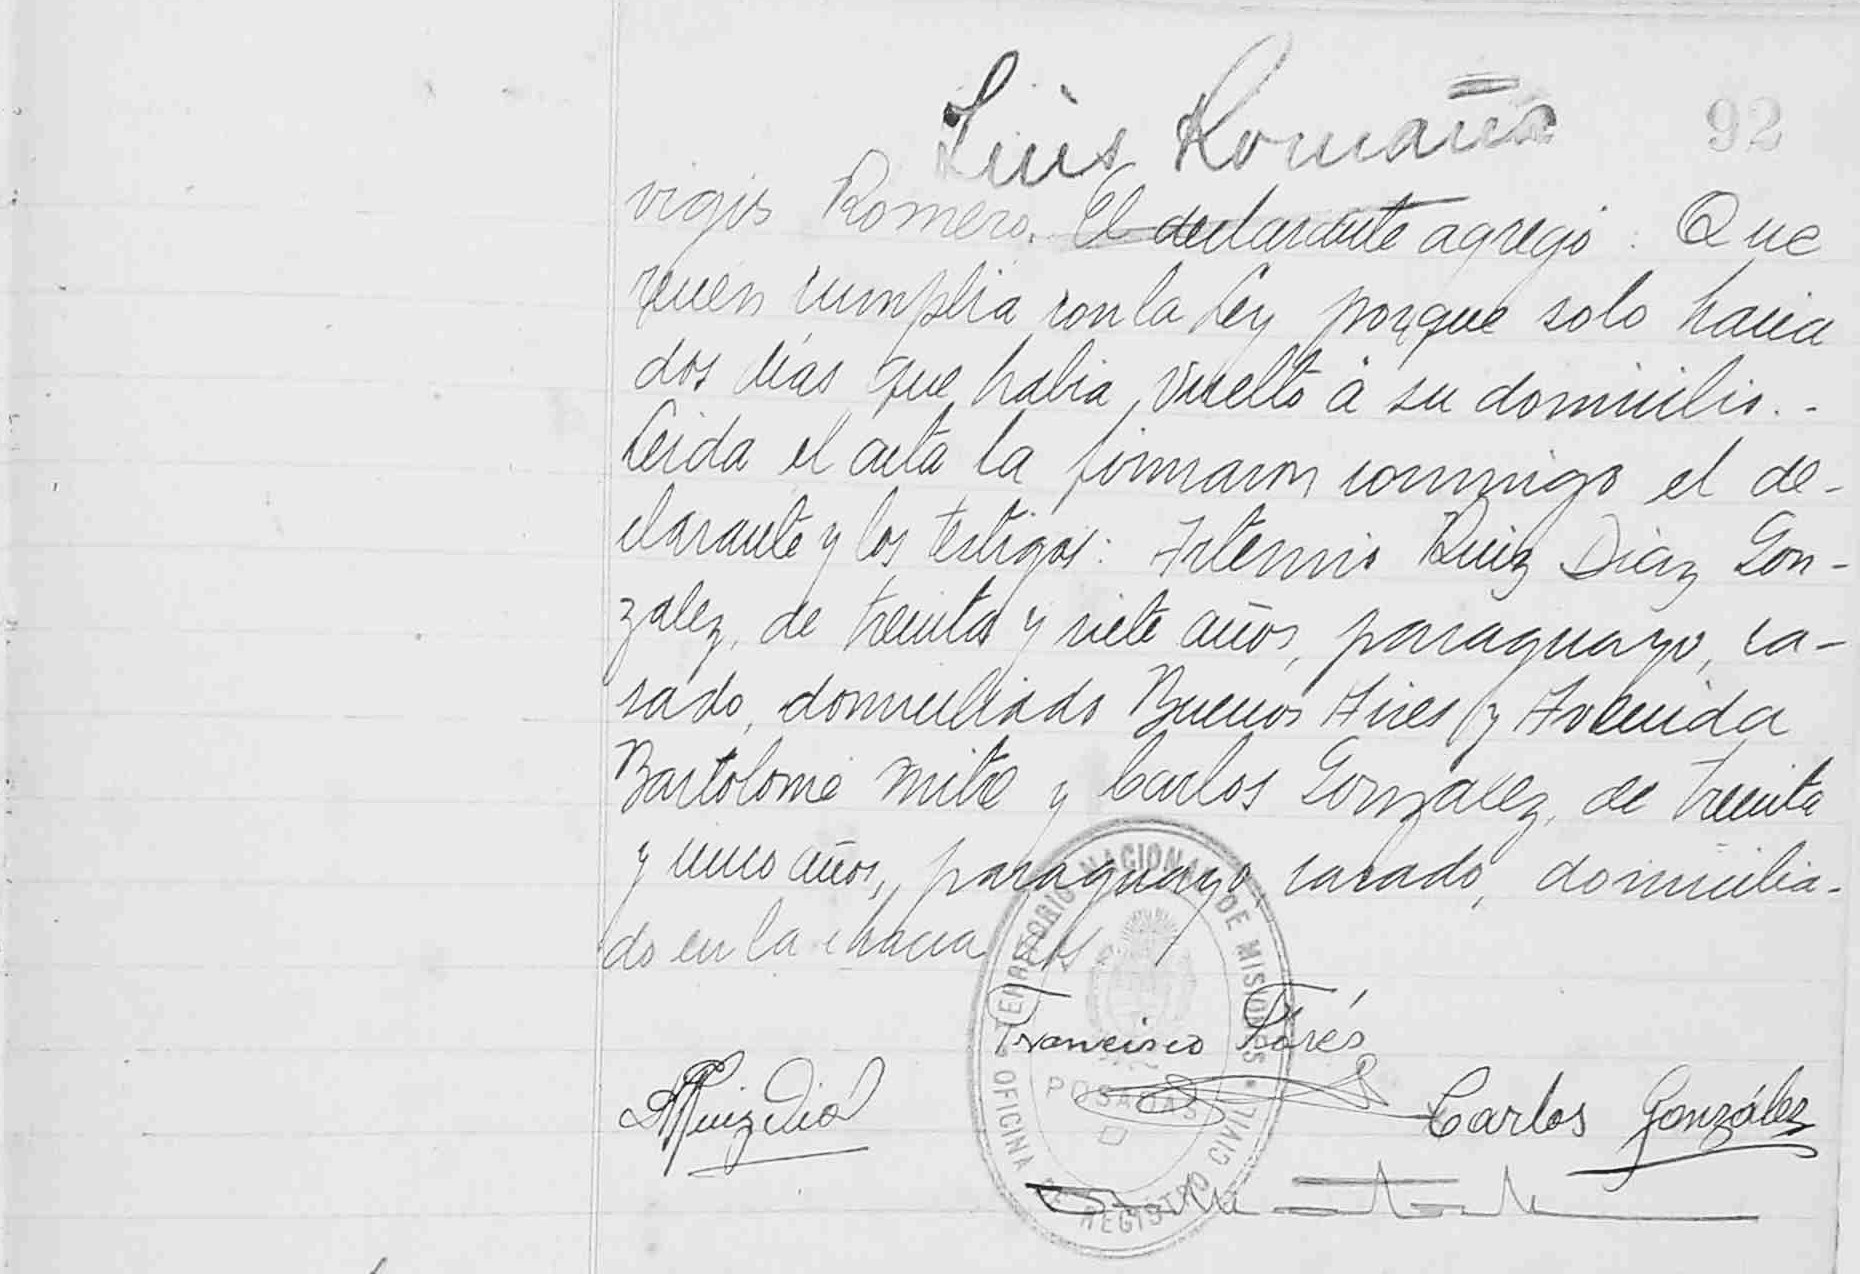 Luis Romaña
92
vigis Romero. El declarante agregó: Que
recien cumplia con la Ley porque solo hacia
dos dias que habia vuelto á su domicilio. -
Leida el acta la firmaron conmigo el de-
clarante y los testigos: Artemio Ruiz Diaz Gon-
zalez, de treinta y siete años, paraguayo, ca-
sado, domiciliado Buenos Aires y Avenida
Bartolomé Mitre y Carlos Gonzalez, de treinta
y cinco años, paraguayo, casado, domicilia-
do en la chacra
TERRITORIO NACIONAL DE MISIONES
Francisco Pórés
POSADAS
Carlos González
OFICINA DE REGISTRO CIVIL